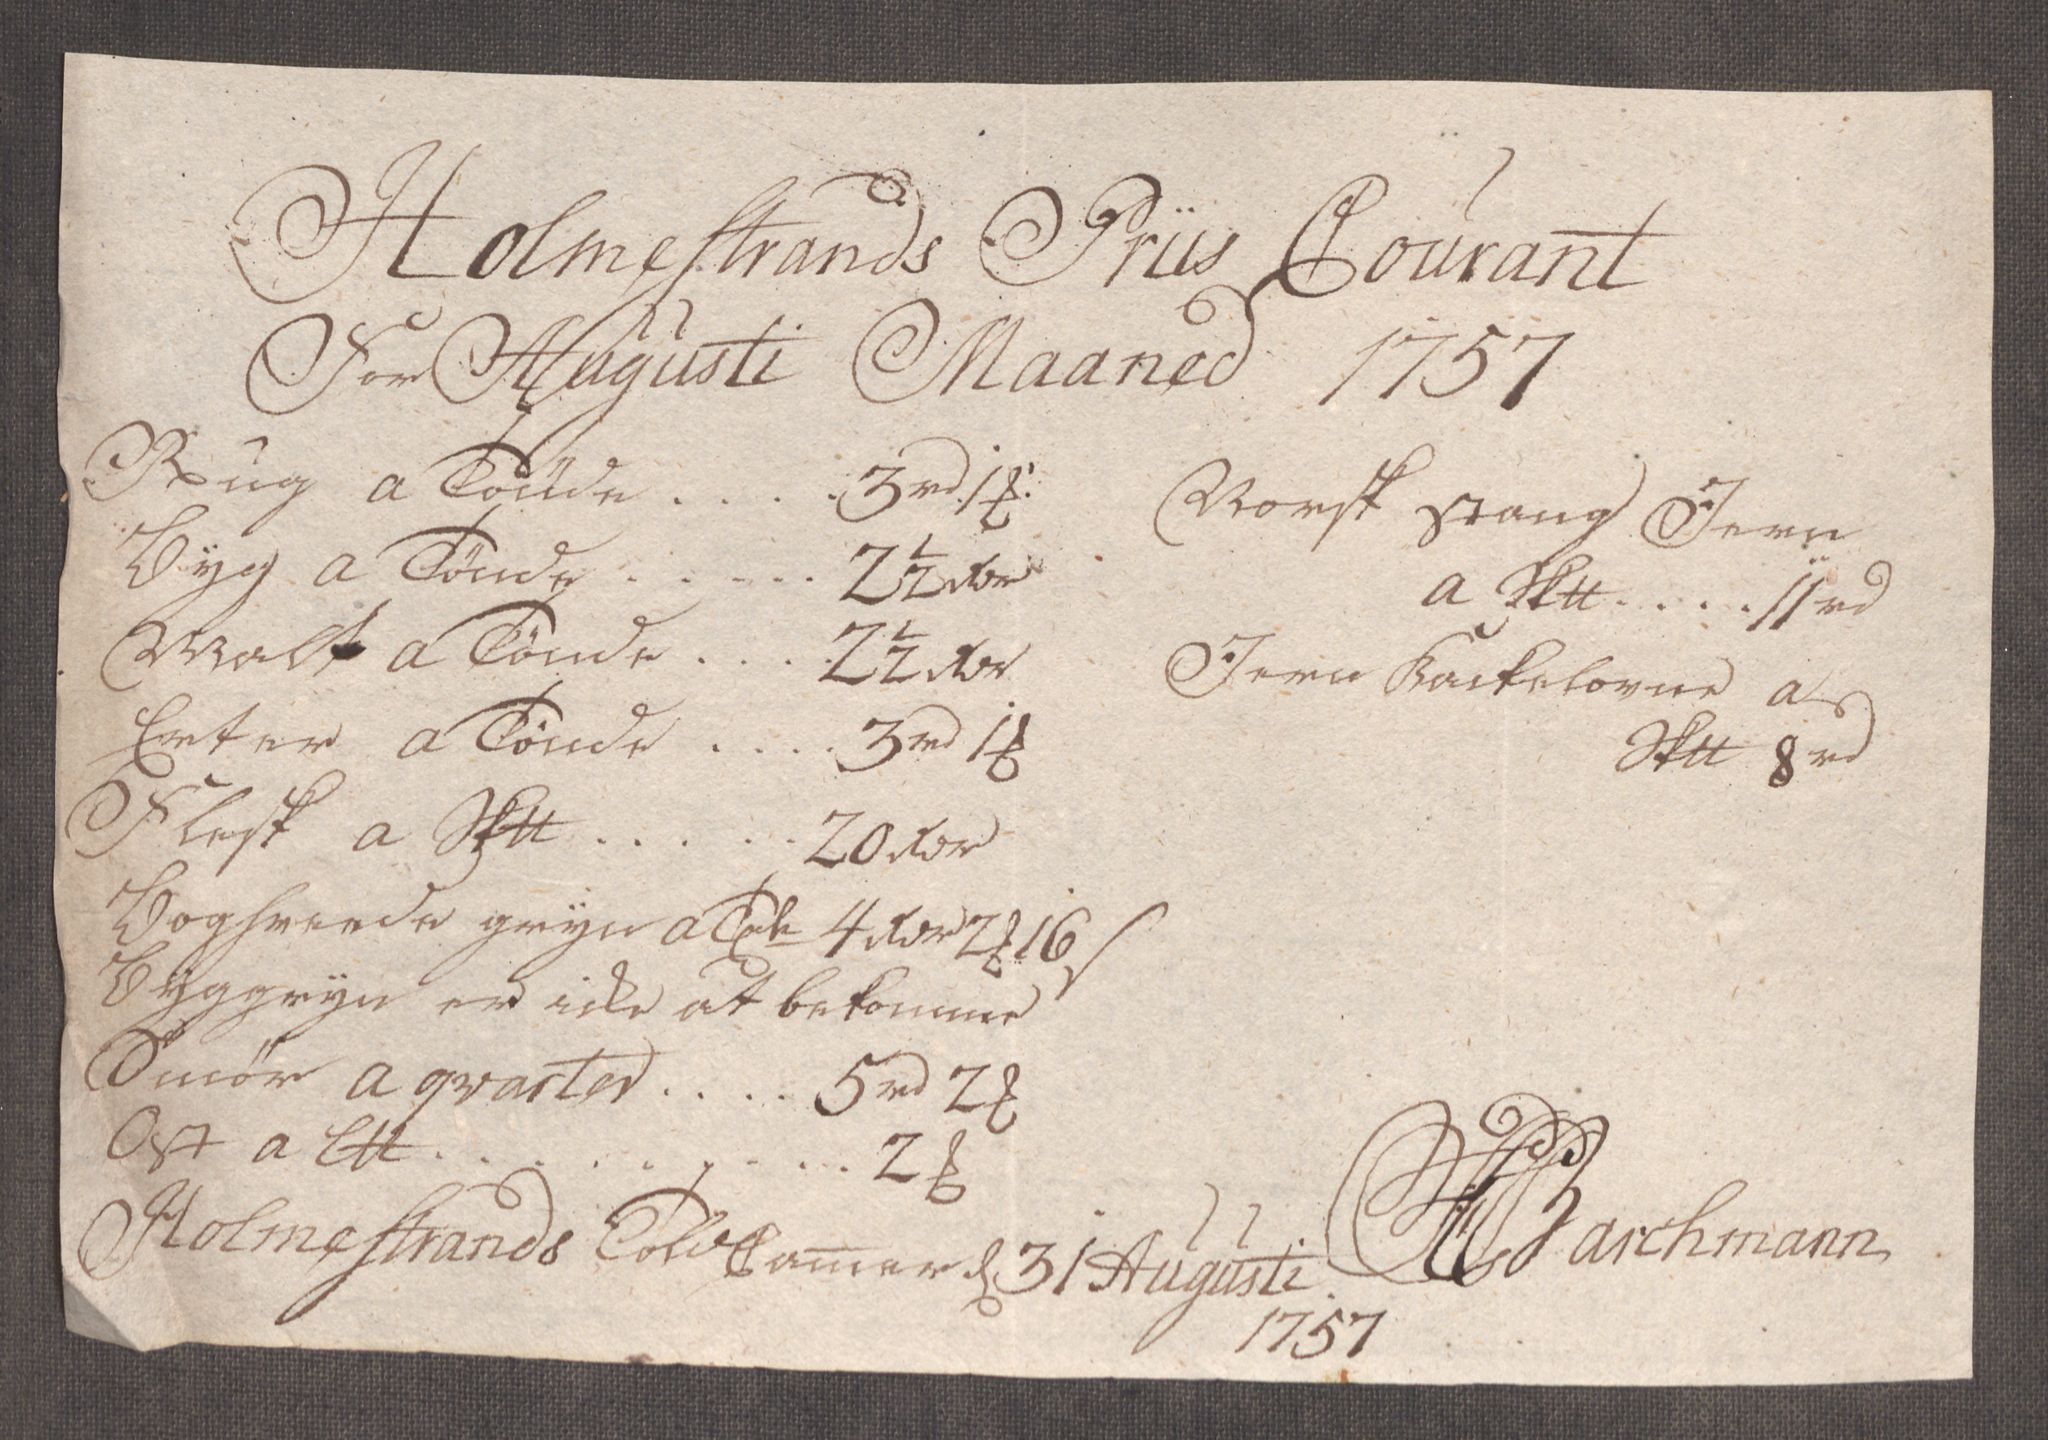 Holmestrands Priis Courant
For Augusti Maaned 1757
Rug a Tönde . . . . . 3 rd 1 ꝑ
Byg a Tönde . . . . . . 2½ rdr
Malt a Tønde . . . . 2½ rdr
Erter a Tönde . . . . 3 rd 1 ꝑ
Flesk a Sk℔ . . . . . . 20 rdr
Boghvede gryn a Tde 4 rdr 2 ꝑ 16 ſ
Byggryn er icke at bekomme
Smör a qvarter . . . . 5 rd 2 ꝑ
Ost a L℔ . . . . . . . . . 2 ꝑ
Norsk stang Jern
a Sk℔ . . . . . 11 rd
Jern Kackelovne a
Sk℔ 8 rd
Holmestrands Told Camer d 31 Augusti
1757
Barchmann